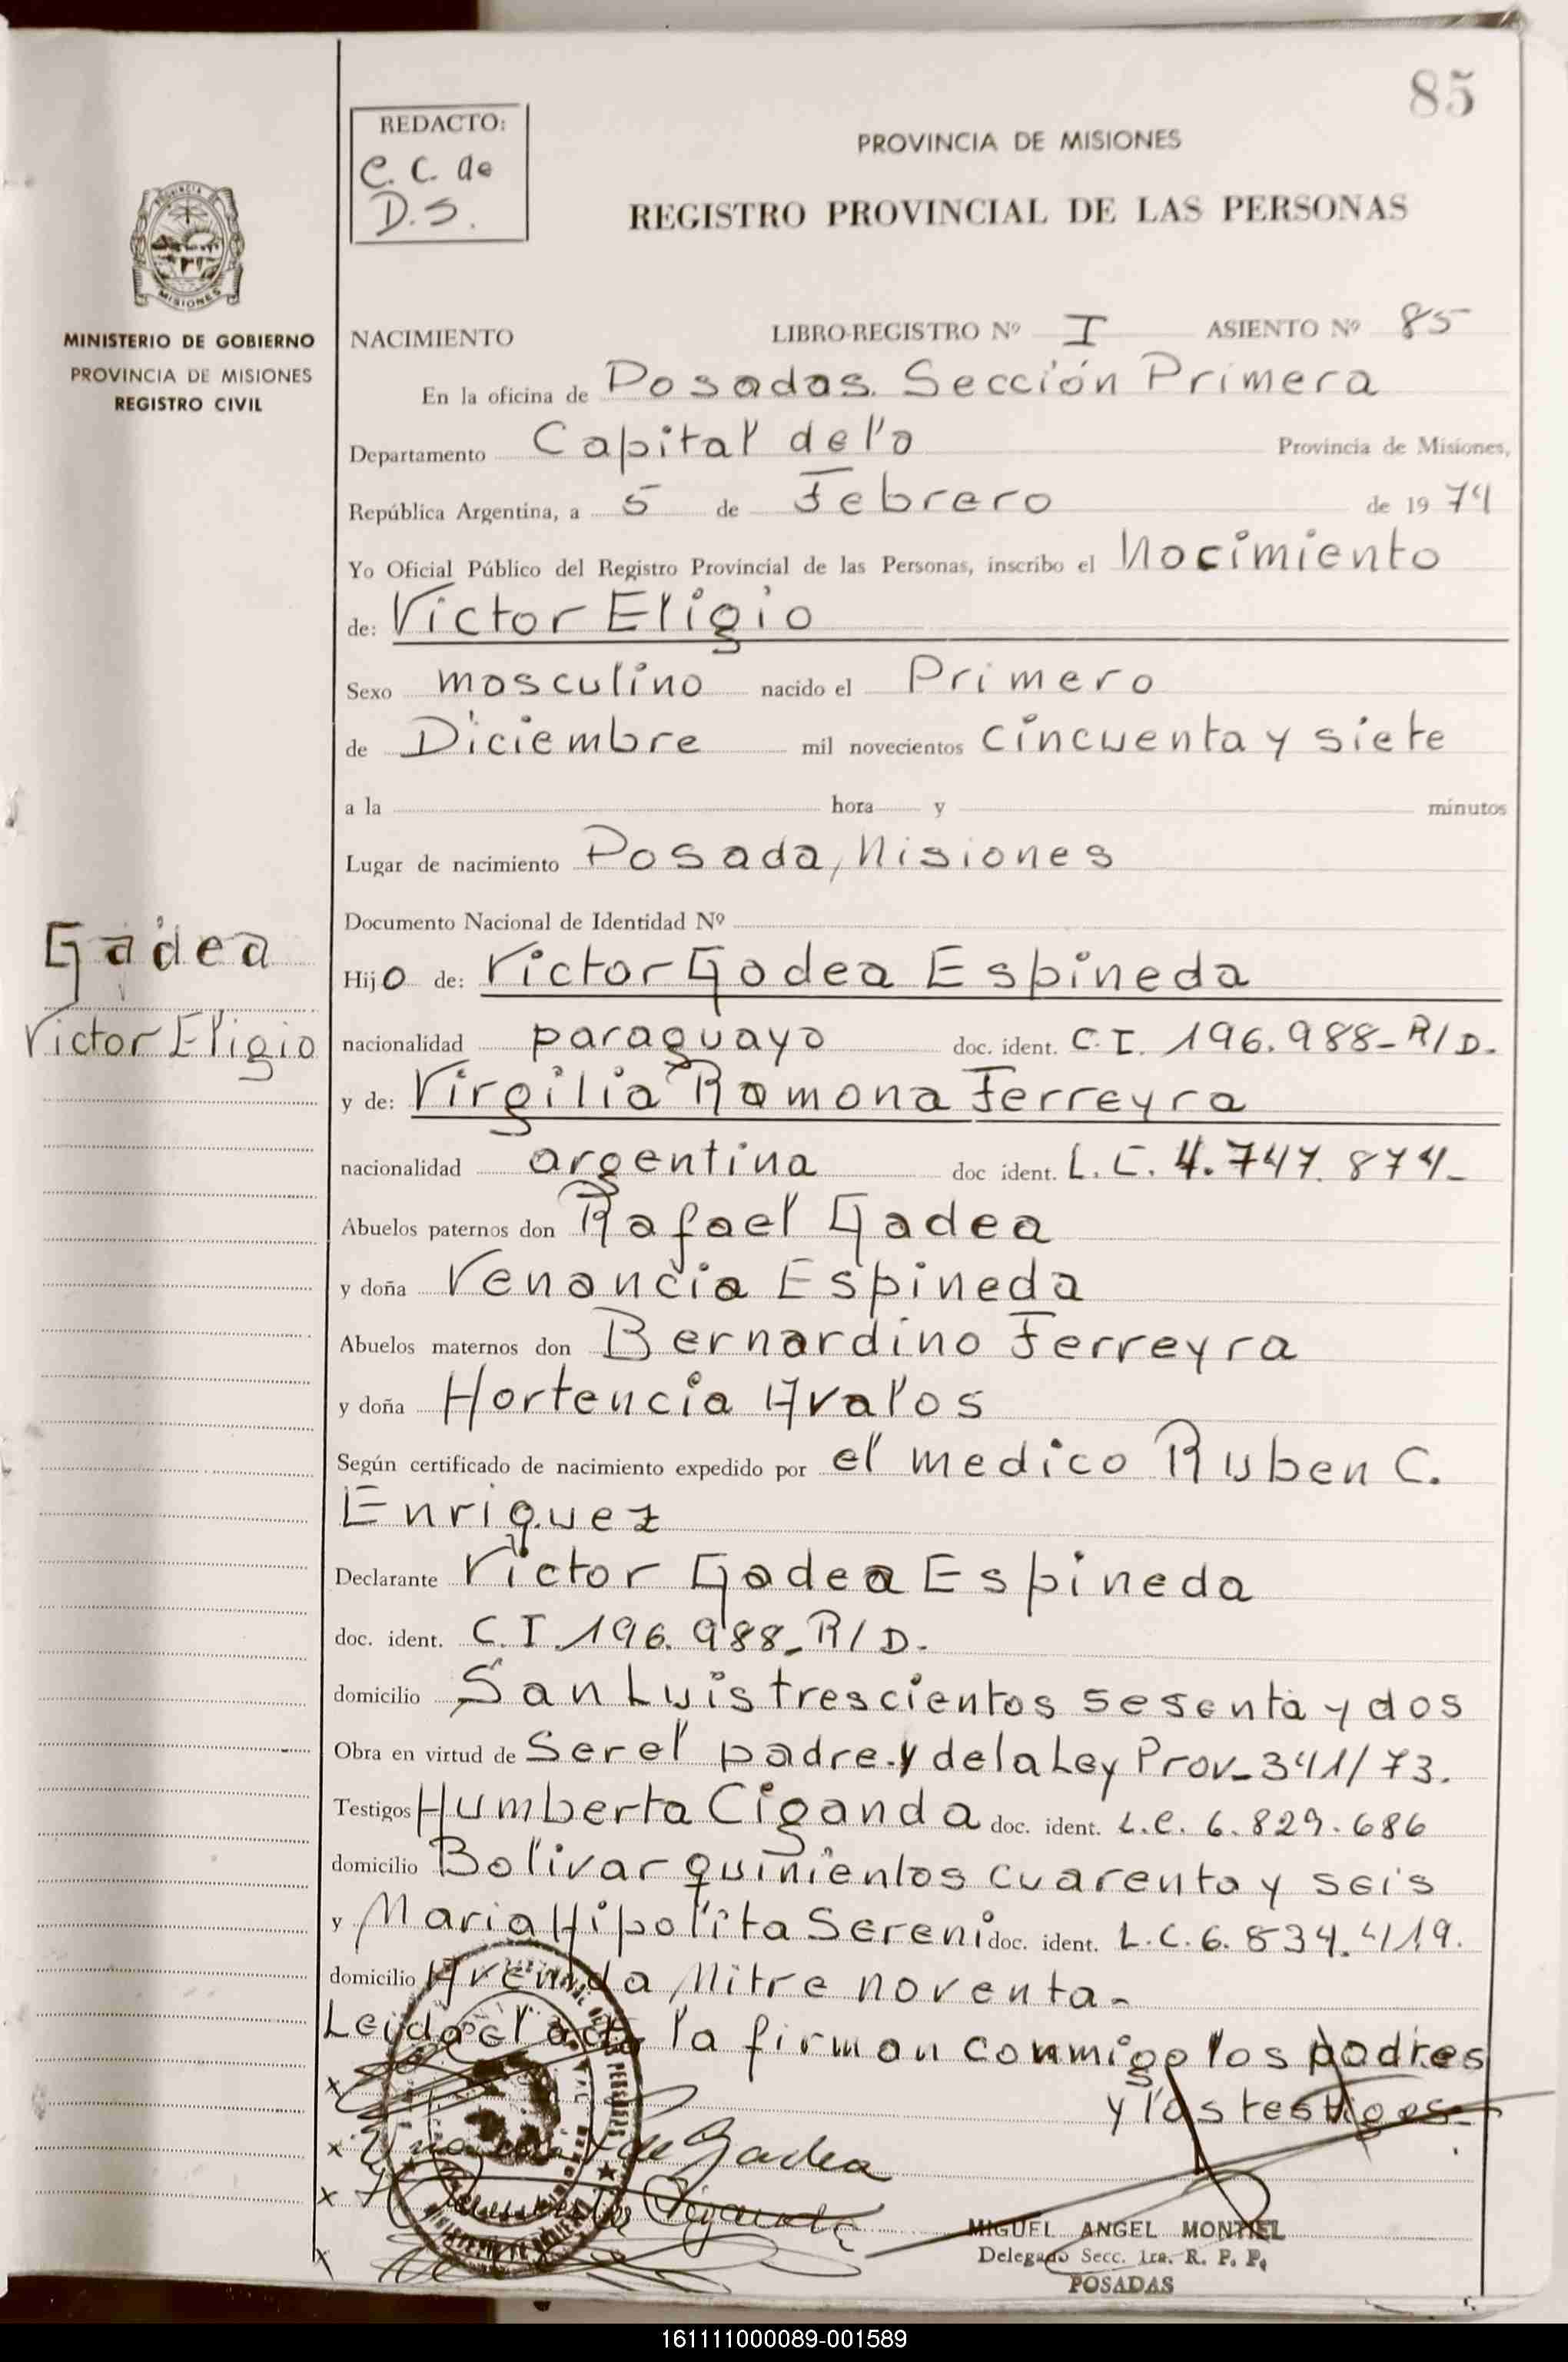 85
REDACTO:
C. C. de
D. S.
PROVINCIA DE MISIONES
REGISTRO PROVINCIAL DE LAS PERSONAS
MISIONES
MINISTERIO DE GOBIERNO
PROVINCIA DE MISIONES
REGISTRO CIVIL
NACIMIENTO LIBRO-REGISTRO Nº I ASIENTO Nº 85
En la oficina de Posadas. Sección Primera
Departamento Capital de la Provincia de Misiones,
República Argentina, a 5 de Febrero de 1974
Yo Oficial Público del Registro Provincial de las Personas, inscribo el Nacimiento
de: Victor Eligio
Sexo masculino nacido el Primero
de Diciembre mil novecientos cincuenta y siete
a la hora y minutos
Lugar de nacimiento Posada, Misiones
Documento Nacional de Identidad Nº
Gadea
Victor Eligio
Hijo de: Victor Gadea Espineda
nacionalidad paraguayo doc. ident. C. I. 196.988_R/D.
y de: Virgilia Ramona Ferreyra
nacionalidad argentina doc ident. L. C. 4.747.874_
Abuelos paternos don Rafael Gadea
y doña Venancia Espineda
Abuelos maternos don Bernardino Ferreyra
y doña Hortencia Avalos
Según certificado de nacimiento expedido por el medico Ruben C.
Enriquez
Declarante Victor Gadea Espineda
doc. ident. C. I. 196.988_R/D.
domicilio San Luis trescientos sesenta y dos
Obra en virtud de Ser el padre.y de la Ley Prov_341/73.
Testigos Humberta Ciganda doc. ident. L.C. 6.829.686
domicilio Bolivar quinientos cuarenta y seis
y Maria Hipolita Sereni doc. ident. L.C. 6.834.419.
domicilio Avenida Mitre noventa_
Leida el acta la firman conmigo los padres
y los testigos_
de Gadea
MIGUEL ANGEL MONTIEL
Delegado Secc. 1ra. R. P. P.
POSADAS
161111000089-001589